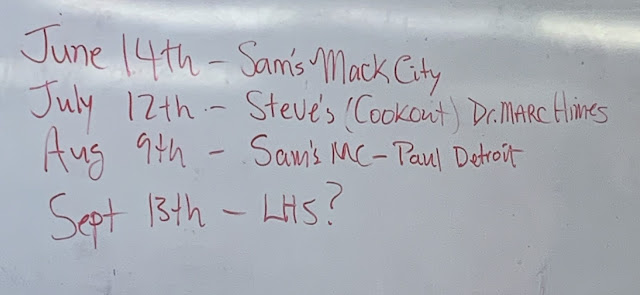 June 14th - Sam's Mack City
July 12th - Steve's (Cookout) Dr. MARC Himes
Aug 9th - Sam's MC - Paul Detroit
Sept 13th - LHS?